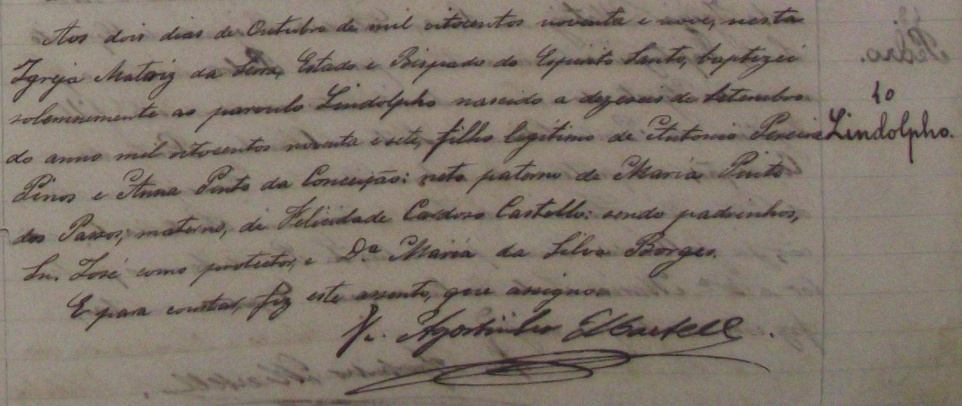 Aos dois dias de Outubro de mil oitocentos noventa e nove, nesta
Igreja Matriz da Serra, Estado e Bispado do Espirito Santo, baptizei
solemnemente ao parvulo Lindolpho nascido a dezeseis de Setembro
do anno mil oitocentos noventa e sete, filho legitimo de Antonio Pereira
Pinos e Anna Pinto da Conceição: neto paterno de Maria Pinto
dos Passos; materno, de Felicidade Cardoso Castello: sendo padrinhos,
Sn. José como protector, e Da Maria da Silva Borges.
E para constar, fiz este assento, que assigno.
Agostinho
40
Lindolpho.
Pedro.